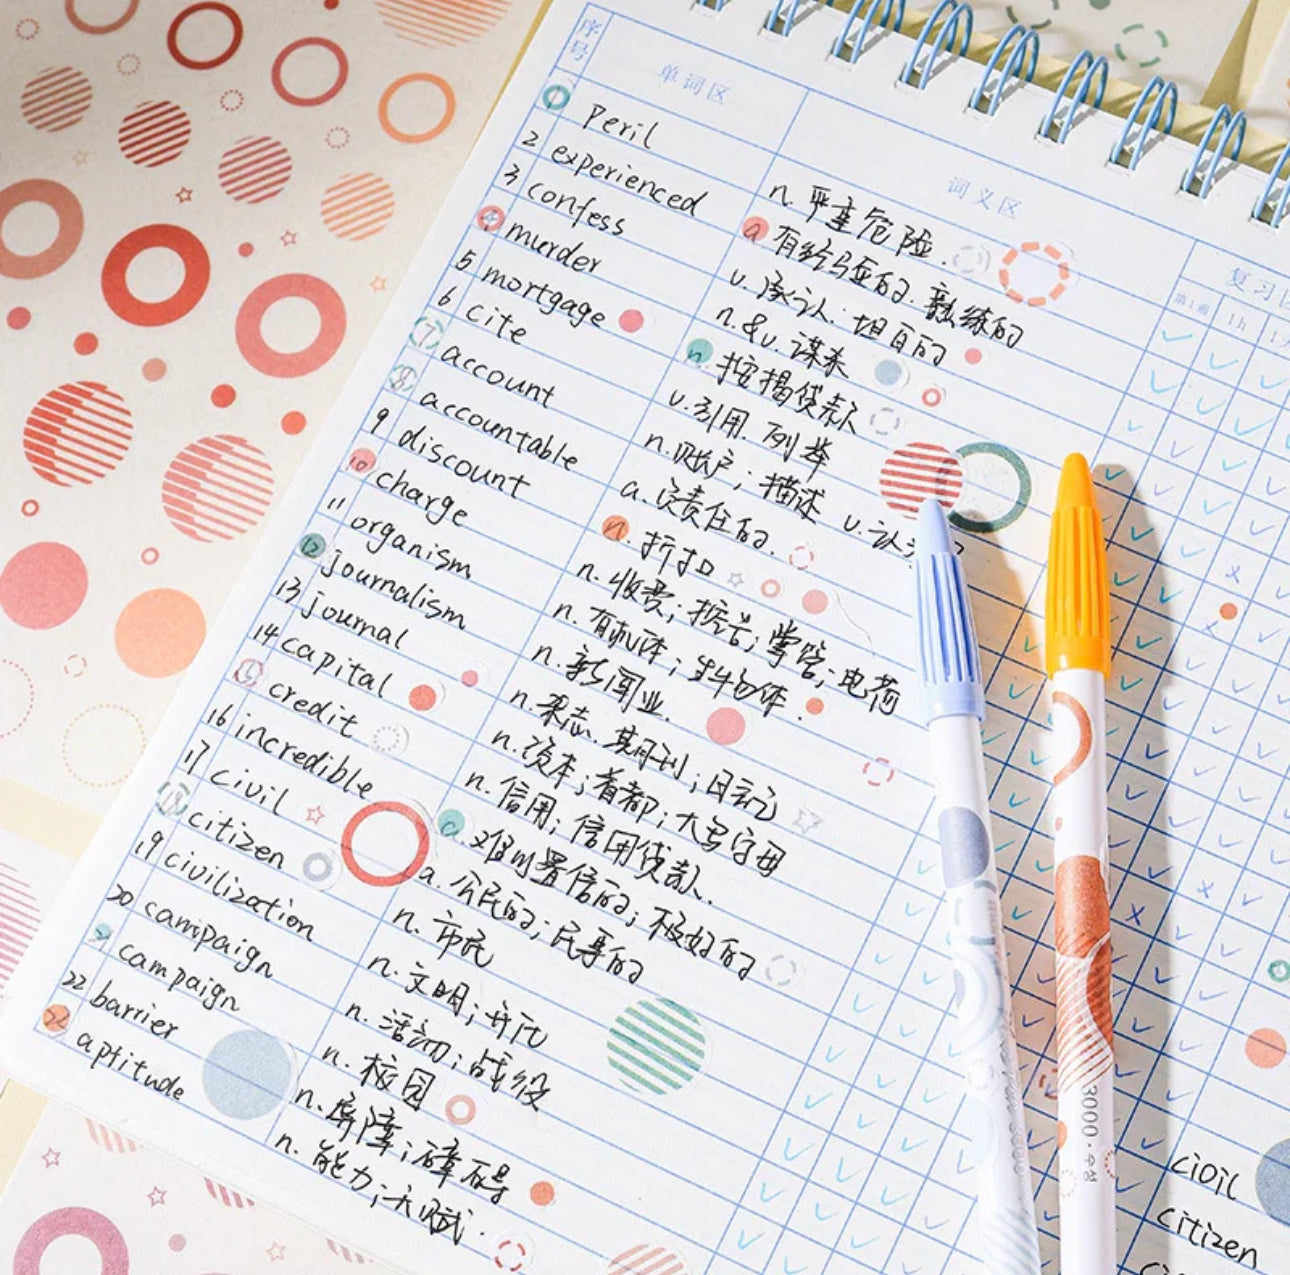 序号 单词区 词义区 复习区
第1遍 1h
peril n. 严重危险.
2 experienced a 有经验的. 熟练的
3 confess v. 承认. 坦白的
4 murder n.&v. 谋杀
5 mortgage n. 按揭贷款
6 cite v. 引用. 列举
7 account n. 账户; 描述 v. 认
8 accountable a. 负责任的.
9 discount n. 折扣
10 charge n. 收费; 控告; 掌管; 电荷
11 organism n. 有机体; 生物体.
12 journalism n. 新闻业.
13 journal n. 杂志. 期刊; 日记
14 capital n. 资本; 首都; 大写字母
15 credit n. 信用; 信用贷款.
16 incredible a. 难以置信的; 极好的
17 civil a. 公民的; 民事的
18 citizen n. 市民
19 civilization n. 文明; 开化
20 campaign n. 活动; 战役
21 campaign n. 校园
22 barrier n. 屏障; 障碍
aptitude n. 能力; 天赋.
3000.
civil
citizen